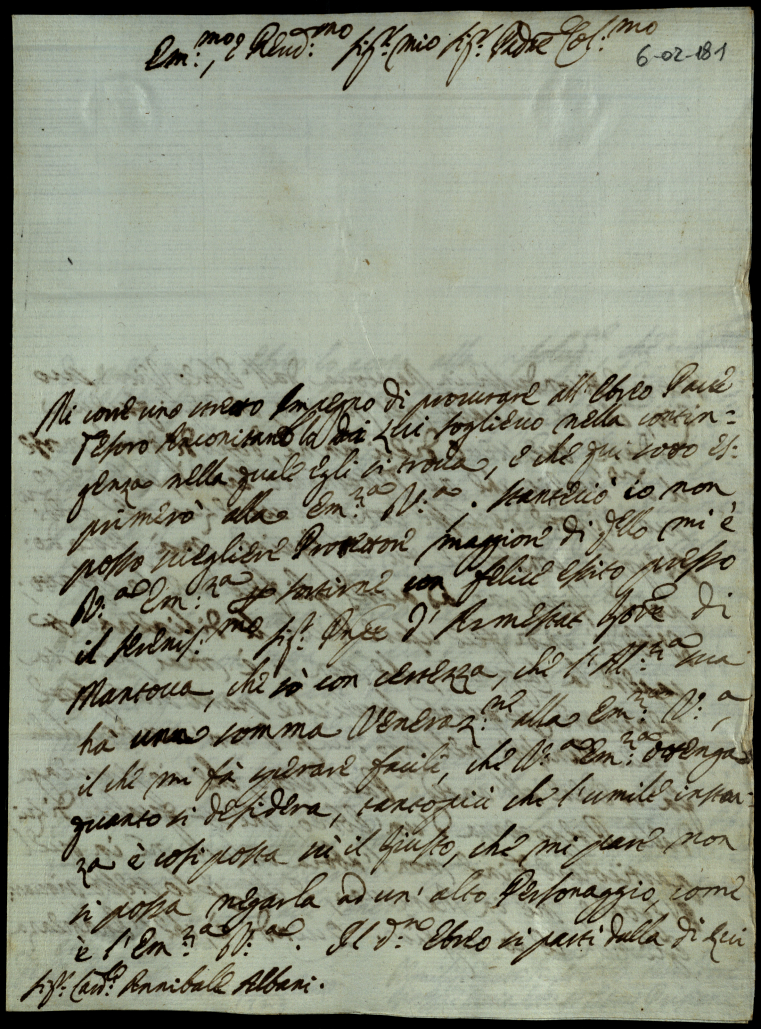 Em.mo, e Reud.mo Sig.r mio Sig.r Padre Col.mo
6-02-181
Mi corre uno stretto Impegno di procurare all'Ebreo
Tesoro Anconitano la di Lui sollievo nella contin=
genza nella quale egli si trova, e che qui sotto es=
primerò alla Em.za V.a. Stanteciò io non
posso scegliere Protettore maggiore di q.llo mi è
V.a Em.za p sortirne con felice esito presso
il Sereniss.mo Sig.r d'Armestat Gov.re di
Mantova, che sò con certezza, che l'Al.za sua
hà una somma Veneraz.ne alla Em.za V.a,
il che mi fà sperare facile, che V.a Em.za ottenga
quanto si desidera, tantopiù che l'umile instan=
za è così posta sù il giusto, che mi pare non
si possa negarla ad un' alto Personaggio, come
è l'Em.za V.a. Il d.o Ebreo si partì dalla di Lui
Sig.r Card.l Annibale Albani.